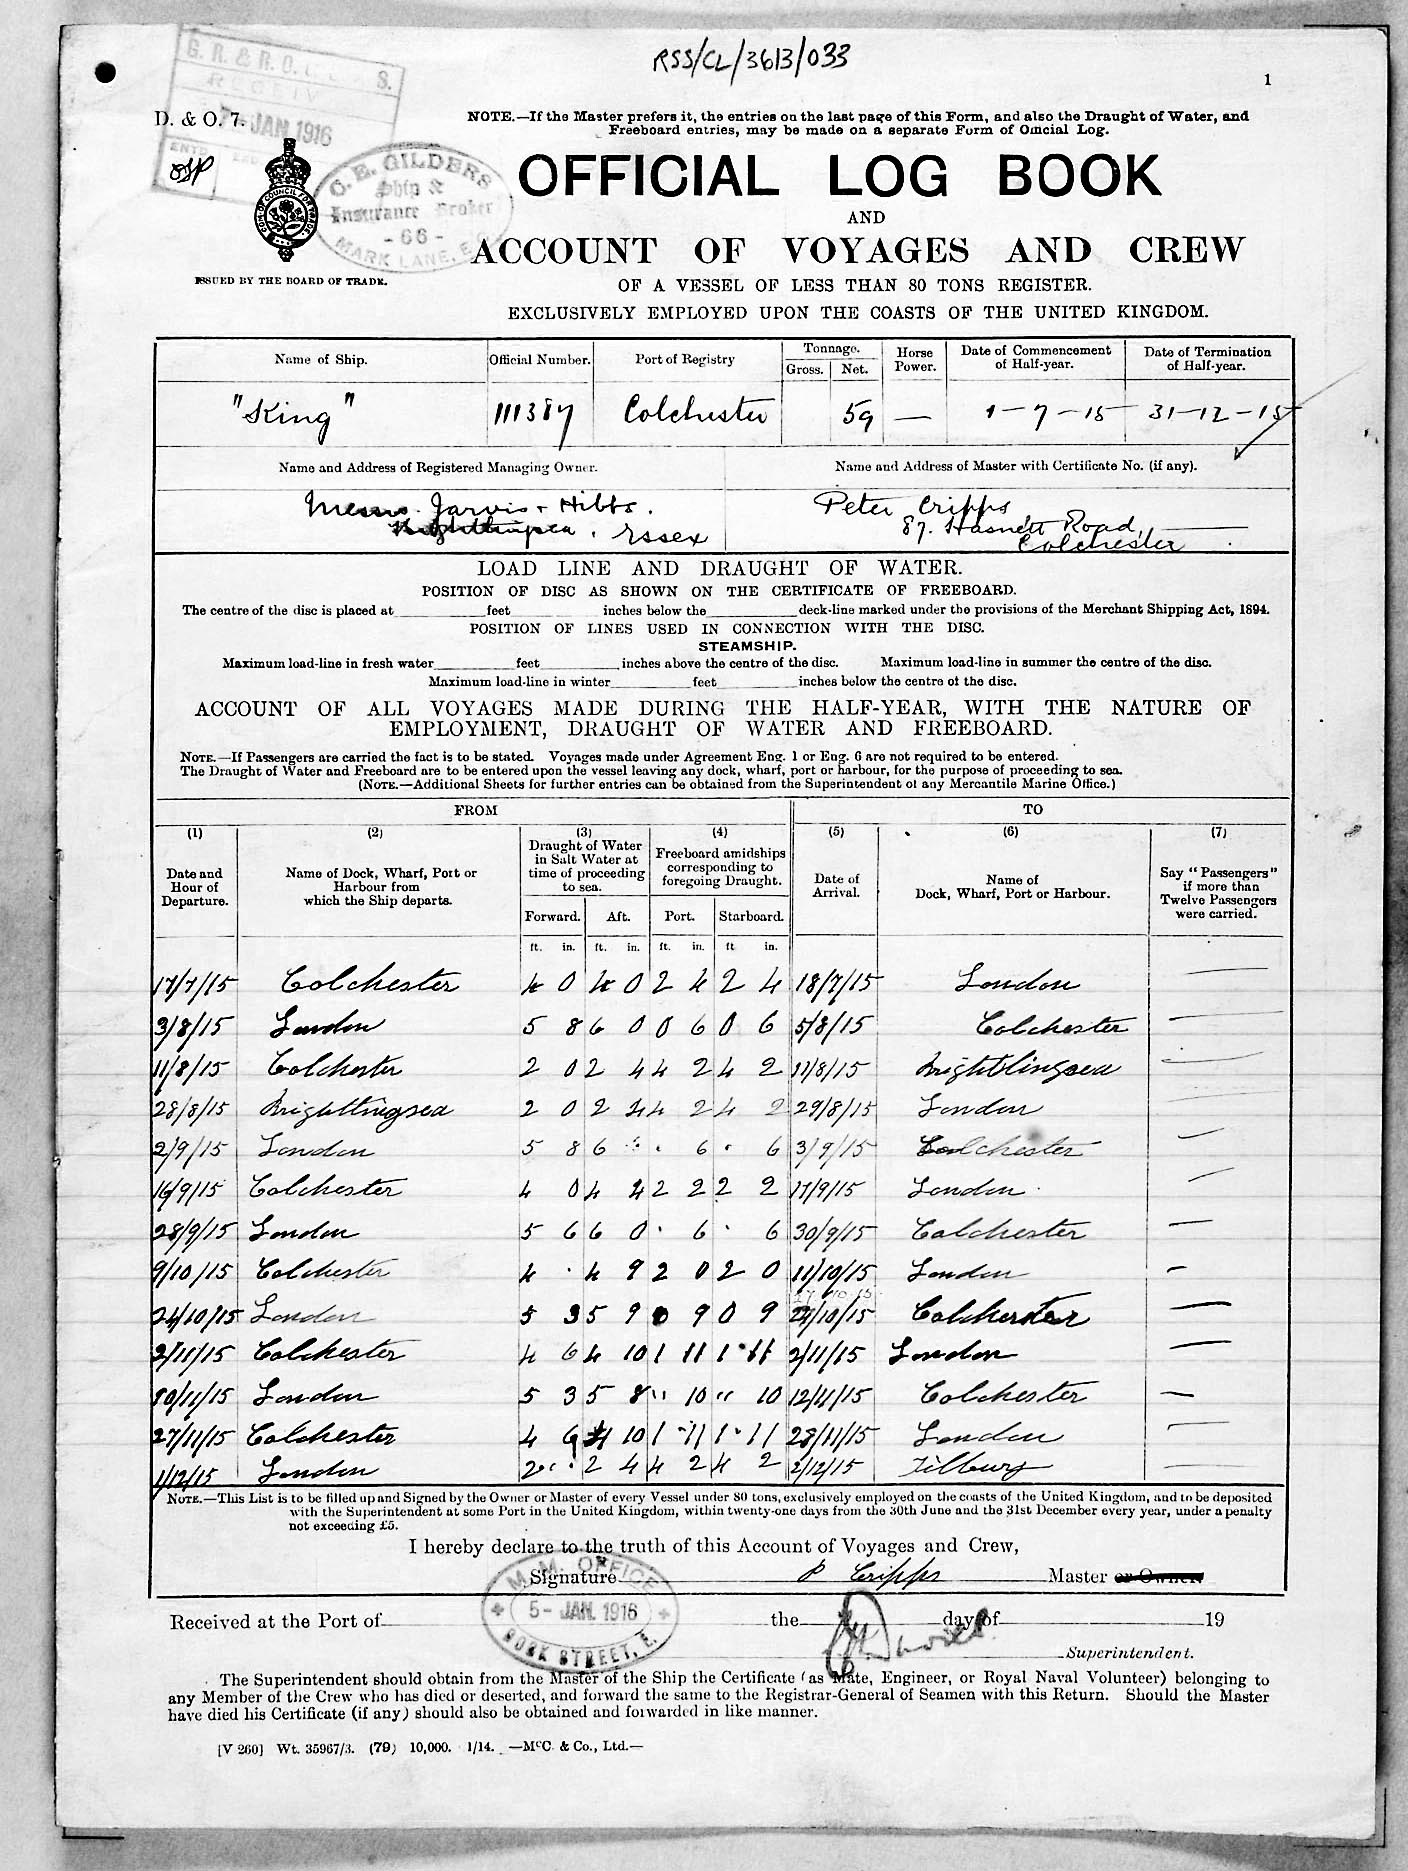 RSS/CL/3613/033
1
G. R. & R. O.
S.
7- JAN 1916
D. & O. 7.
NOTE.—If the Master prefers it, the entries on the last page of this Form, and also the Draught of Water, and
Freeboard entries, may be made on a separate Form of Official Log.
C. E. GILDERS
Ship &
Insurance Broker
- 66 -
MARK LANE, E.C.
OFFICIAL LOG BOOK
AND
ACCOUNT OF VOYAGES AND CREW
ISSUED BY THE BOARD OF TRADE.
OF A VESSEL OF LESS THAN 80 TONS REGISTER.
EXCLUSIVELY EMPLOYED UPON THE COASTS OF THE UNITED KINGDOM.
Name of Ship. Official Number. Port of Registry Tonnage. Gross. Net. Horse Power. Date of Commencement of Half-year. Date of Termination of Half-year.
"King" 111387 Colchester 59 — 1-7-15 31-12-15
Name and Address of Registered Managing Owner. Name and Address of Master with Certificate No. (if any).
Messrs. Jarvis + Hibbs. Peter Cripps
Brightlingsea, Essex 87. Road,
Colchester
LOAD LINE AND DRAUGHT OF WATER.
POSITION OF DISC AS SHOWN ON THE CERTIFICATE OF FREEBOARD.
The centre of the disc is placed at feet inches below the deck-line marked under the provisions of the Merchant Shipping Act, 1894.
POSITION OF LINES USED IN CONNECTION WITH THE DISC.
STEAMSHIP.
Maximum load-line in fresh water feet inches above the centre of the disc. Maximum load-line in summer the centre of the disc.
Maximum load-line in winter feet inches below the centre of the disc.
ACCOUNT OF ALL VOYAGES MADE DURING THE HALF-YEAR, WITH THE NATURE OF
EMPLOYMENT, DRAUGHT OF WATER AND FREEBOARD.
NOTE.—If Passengers are carried the fact is to be stated. Voyages made under Agreement Eng. 1 or Eng. 6 are not required to be entered.
The Draught of Water and Freeboard are to be entered upon the vessel leaving any dock, wharf, port or harbour, for the purpose of proceeding to sea.
(NOTE.—Additional Sheets for further entries can be obtained from the Superintendent of any Mercantile Marine Office.)
FROM TO
(1) (2) (3) (4) (5) (6) (7)
Date and Hour of Departure. Name of Dock, Wharf, Port or Harbour from which the Ship departs. Draught of Water in Salt Water at time of proceeding to sea. Freeboard amidships corresponding to foregoing Draught. Date of Arrival. Name of Dock, Wharf, Port or Harbour. Say "Passengers" if more than Twelve Passengers were carried.
Forward. Aft. Port. Starboard.
ft. in. ft. in. ft. in. ft in.
17/7/15 Colchester 4 0 4 0 2 4 2 4 18/7/15 London —
3/8/15 London 5 8 6 0 0 6 0 6 5/8/15 Colchester —
11/8/15 Colchester 2 0 2 4 4 2 4 2 11/8/15 Brightlingsea —
28/8/15 Brightlingsea 2 0 2 4 4 2 4 2 29/8/15 London —
2/9/15 London 5 8 6 · · 6 · 6 3/9/15 Colchester —
16/9/15 Colchester 4 0 4 4 2 2 2 2 17/9/15 London —
28/9/15 London 5 6 6 0 · 6 · 6 30/9/15 Colchester —
9/10/15 Colchester 4 · 4 9 2 0 2 0 11/10/15 London —
24/10/15 London 5 3 5 9 0 9 0 9 27/10/15 Colchester —
2/11/15 Colchester 4 6 4 10 1 11 1 11 2/11/15 London —
10/11/15 London 5 3 5 8 " 10 " 10 12/11/15 Colchester —
27/11/15 Colchester 4 9 4 10 1 11 1 11 28/11/15 London —
1/12/15 London 2 · 2 4 4 2 4 2 2/12/15 Tilbury —
NOTE.—This List is to be filled up and Signed by the Owner or Master of every Vessel under 80 tons, exclusively employed on the coasts of the United Kingdom, and to be deposited
with the Superintendent at some Port in the United Kingdom, within twenty-one days from the 30th June and the 31st December every year, under a penalty
not exceeding £5.
I hereby declare to the truth of this Account of Voyages and Crew,
Signature P Cripps Master or Owner.
M. M. OFFICE
5- JAN. 1916
DOCK STREET, E.
Received at the Port of the day of 19
Superintendent.
The Superintendent should obtain from the Master of the Ship the Certificate (as Mate, Engineer, or Royal Naval Volunteer) belonging to
any Member of the Crew who has died or deserted, and forward the same to the Registrar-General of Seamen with this Return. Should the Master
have died his Certificate (if any) should also be obtained and forwarded in like manner.
[V 260] Wt. 35967/3. (79) 10,000. 1/14. —McC. & Co., Ltd.—